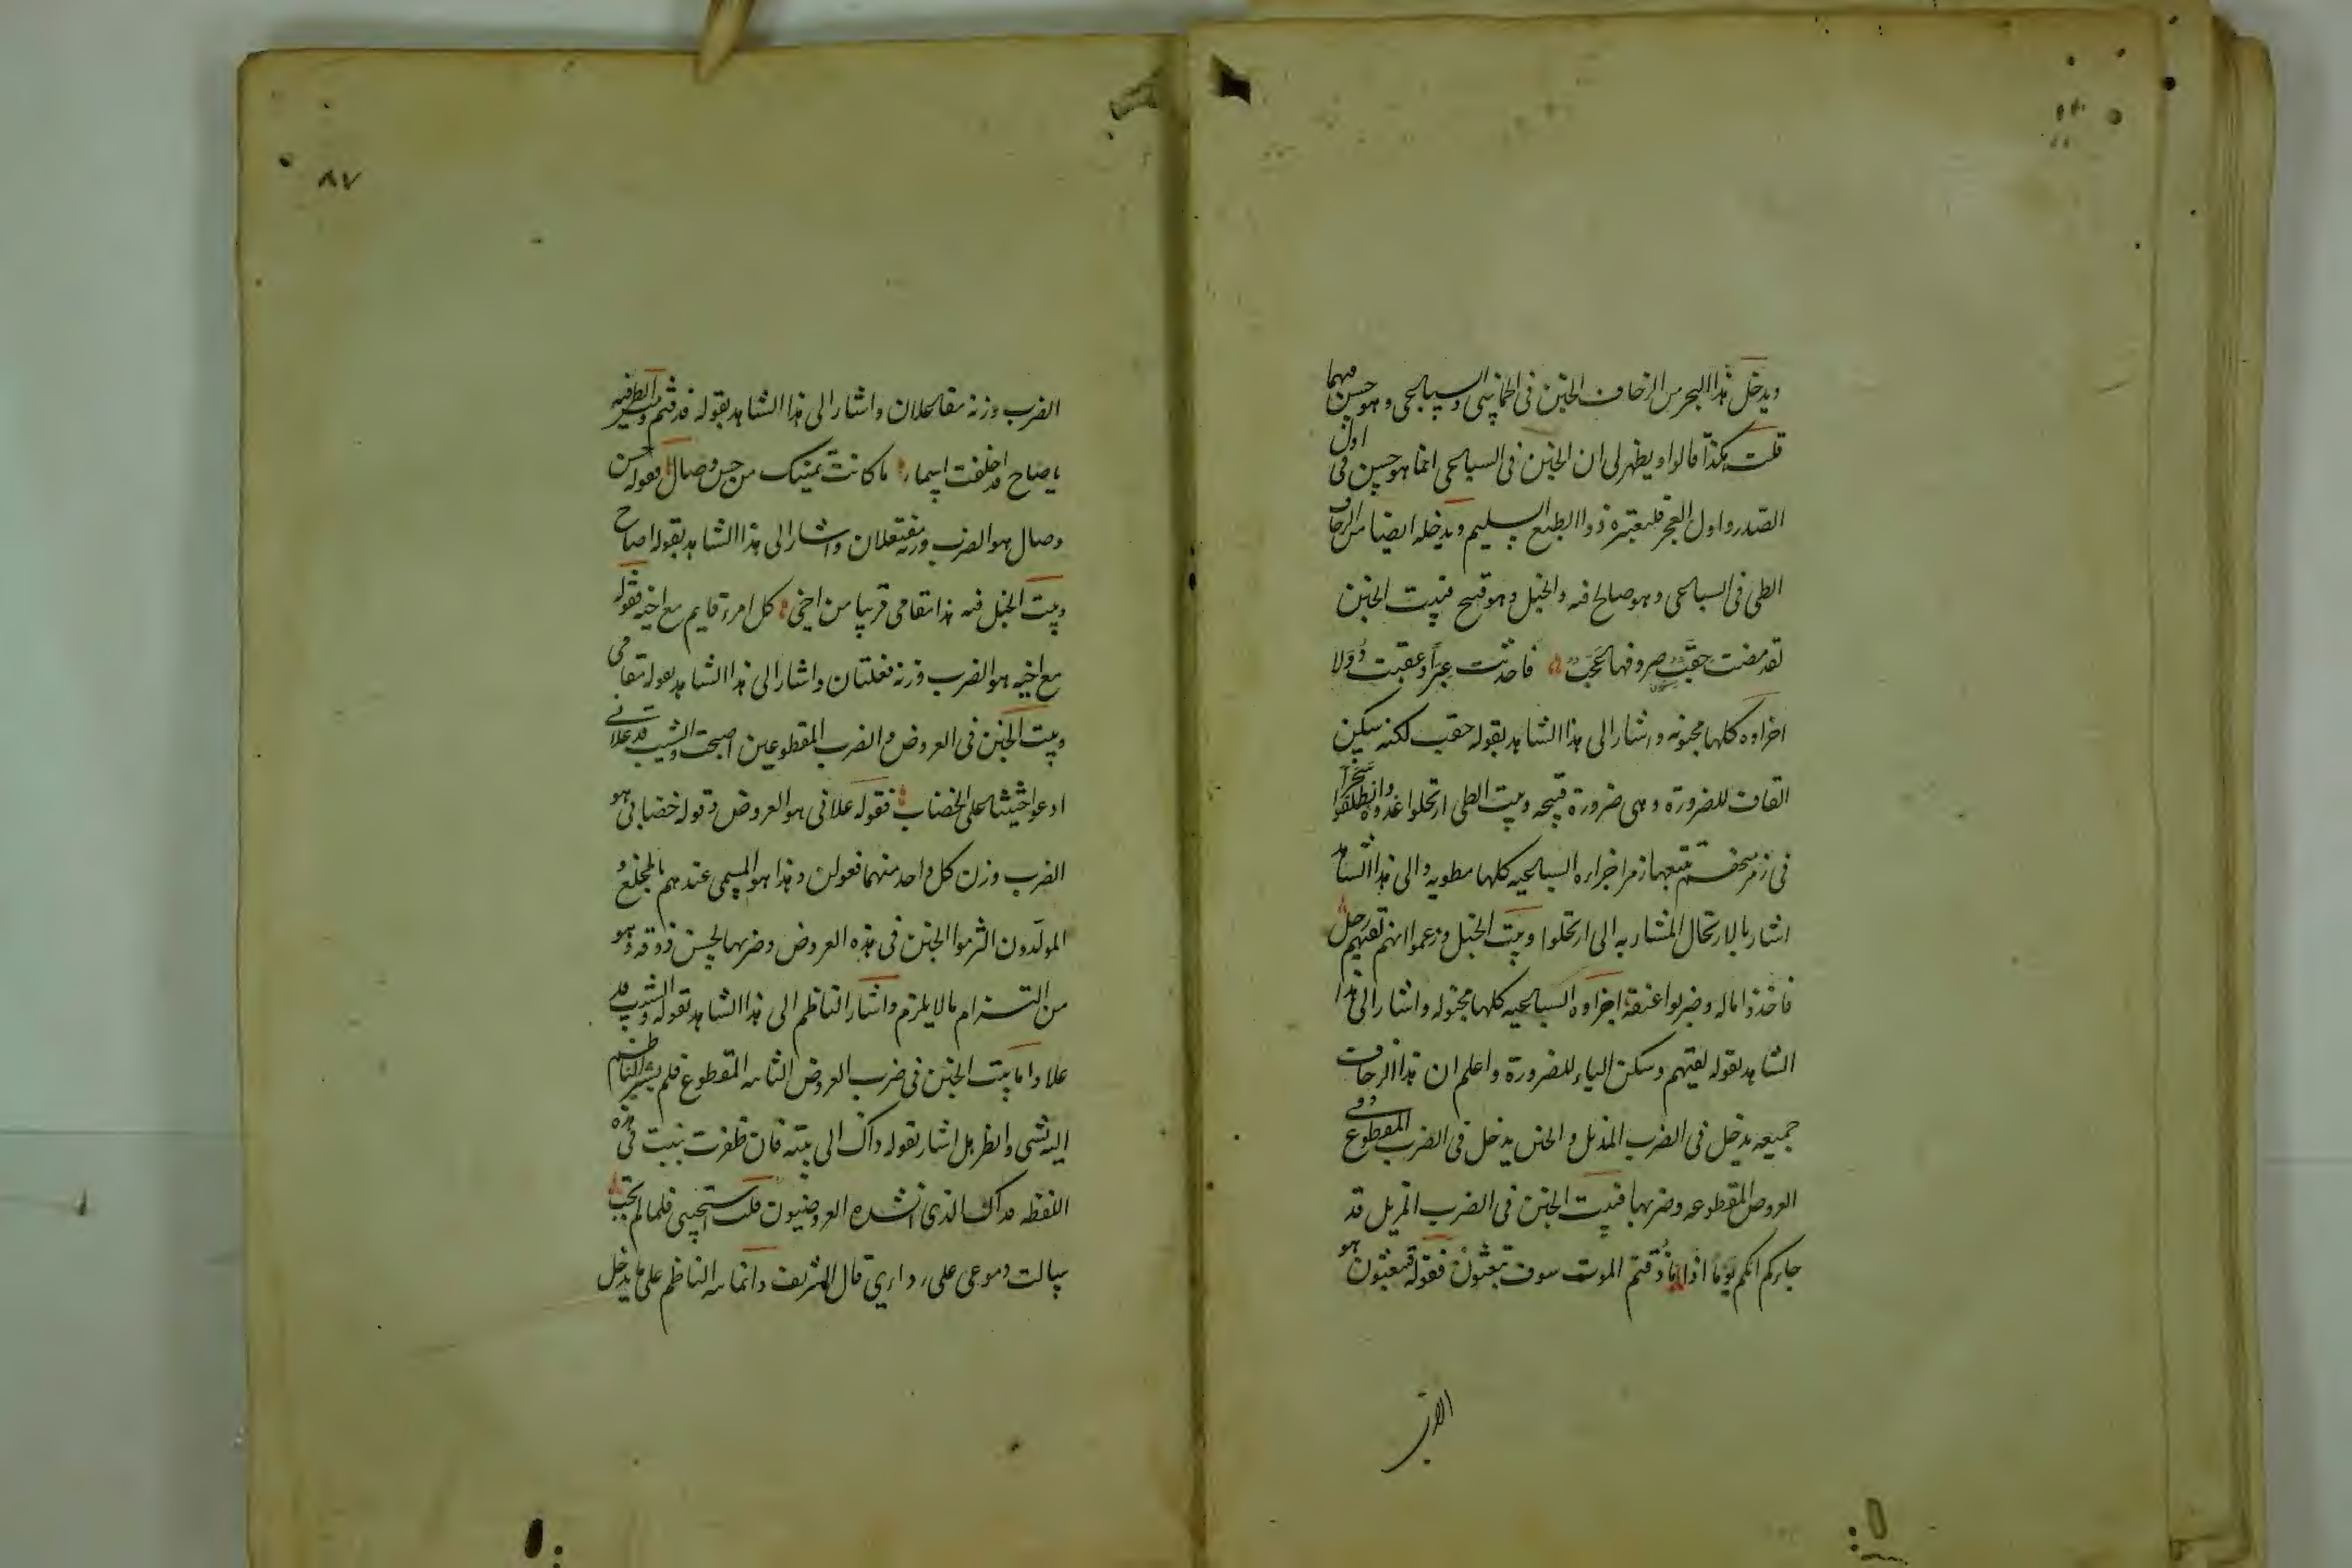 ويدخل هذا البحر من الزحاف الخبن في الخماسي والسباعي وهو حسن فيهما
قلت هكذا قالوا ويظهر لي ان الخبن في السباعي انما هو حسن في اول
الصدر واول العجز فليعتبره ذو الطبع السليم ويدخله ايضا من الزحاف
الطي في السباعي وهو صالح فيه والخبل وهو قبيح فبيت الخبن
لقد مضت حقب صروفها عجب فاحدثت عبرا وعقبت دولا
اجزاوه كلها مخبونه واشار الى هذا الشاهد بقوله حقب لكنه سكن
القاف للضرورة وهي ضرورة قبيحه وبيت الطي ارتحلوا غدوة وانطلقوا سحرا
في زمر منهم تتبعها زمر اجزاءه السباعيه كلها مطويه والى هذا الشاهد
اشار بالارتحال المشار به الى ارتحلوا وبيت الخبل وزعموا انهم لقيهم رجل
فاخذوا ماله وضربوا عنقه اجزاوه السباعيه كلها مخبوله واشار الى هذا
الشاهد بقوله لقيهم وسكن الياء للضرورة واعلم ان هذا الزحاف
جميعه يدخل في الضرب المذيل والخبن يدخل في الضرب المقطوع وفي
العروض المقطوعه وضربها فبيت الخبن في الضرب المذيل قد
جاءكم انكم يوما اذا ما ذقتم الموت سوف تبعثون فقوله فتبعثون هو
الضرب
٨٧
الضرب وزنه مفاعلان واشار الى هذا الشاهد بقوله قد قتم وبيت الطي فيه
يا صاح قد اخلفت اسماء ما كانت تمنيك من حسن وصال فقوله حسن
وصال هو الضرب وزنه مفتعلان واشار الى هذا الشاهد بقوله اصاح
وبيت الخبل فيه هذا مقامي قريبا من اخي كل امرء قايم مع اخيه فقوله
مع اخيه هو الضرب وزنه فعلتان واشار الى هذا الشاهد بقوله مقامي
وبيت الخبن في العروض والضرب المقطوعين اصبحت والشيب قد علاني
ادعو حثيثا على الخضاب فقوله علاني هو العروض وقوله خضابي هو
الضرب وزن كل واحد منهما فعولن وهذا هو المسمى عندهم بالمخلع و
المولدون التزموا الخبن في هذه العروض وضربها لحسن ذوقه وهو
من التزام ما لا يلزم واشار الناظم الى هذا الشاهد بقوله والشيب قد
علا واما بيت الخبن في ضرب العروض الثانيه المقطوع فلم يشر الناظم
اليه بشي وانظر هل اشار بقوله داك الى بيته فان ظفرت ببيت فيه هذه
اللفظه فذاك الذي انشده العروضيون قلت استجيبي فلما لم تجب
سالت دموعي على ردايي قال الشريف وانما نبه الناظم على ما يدخل